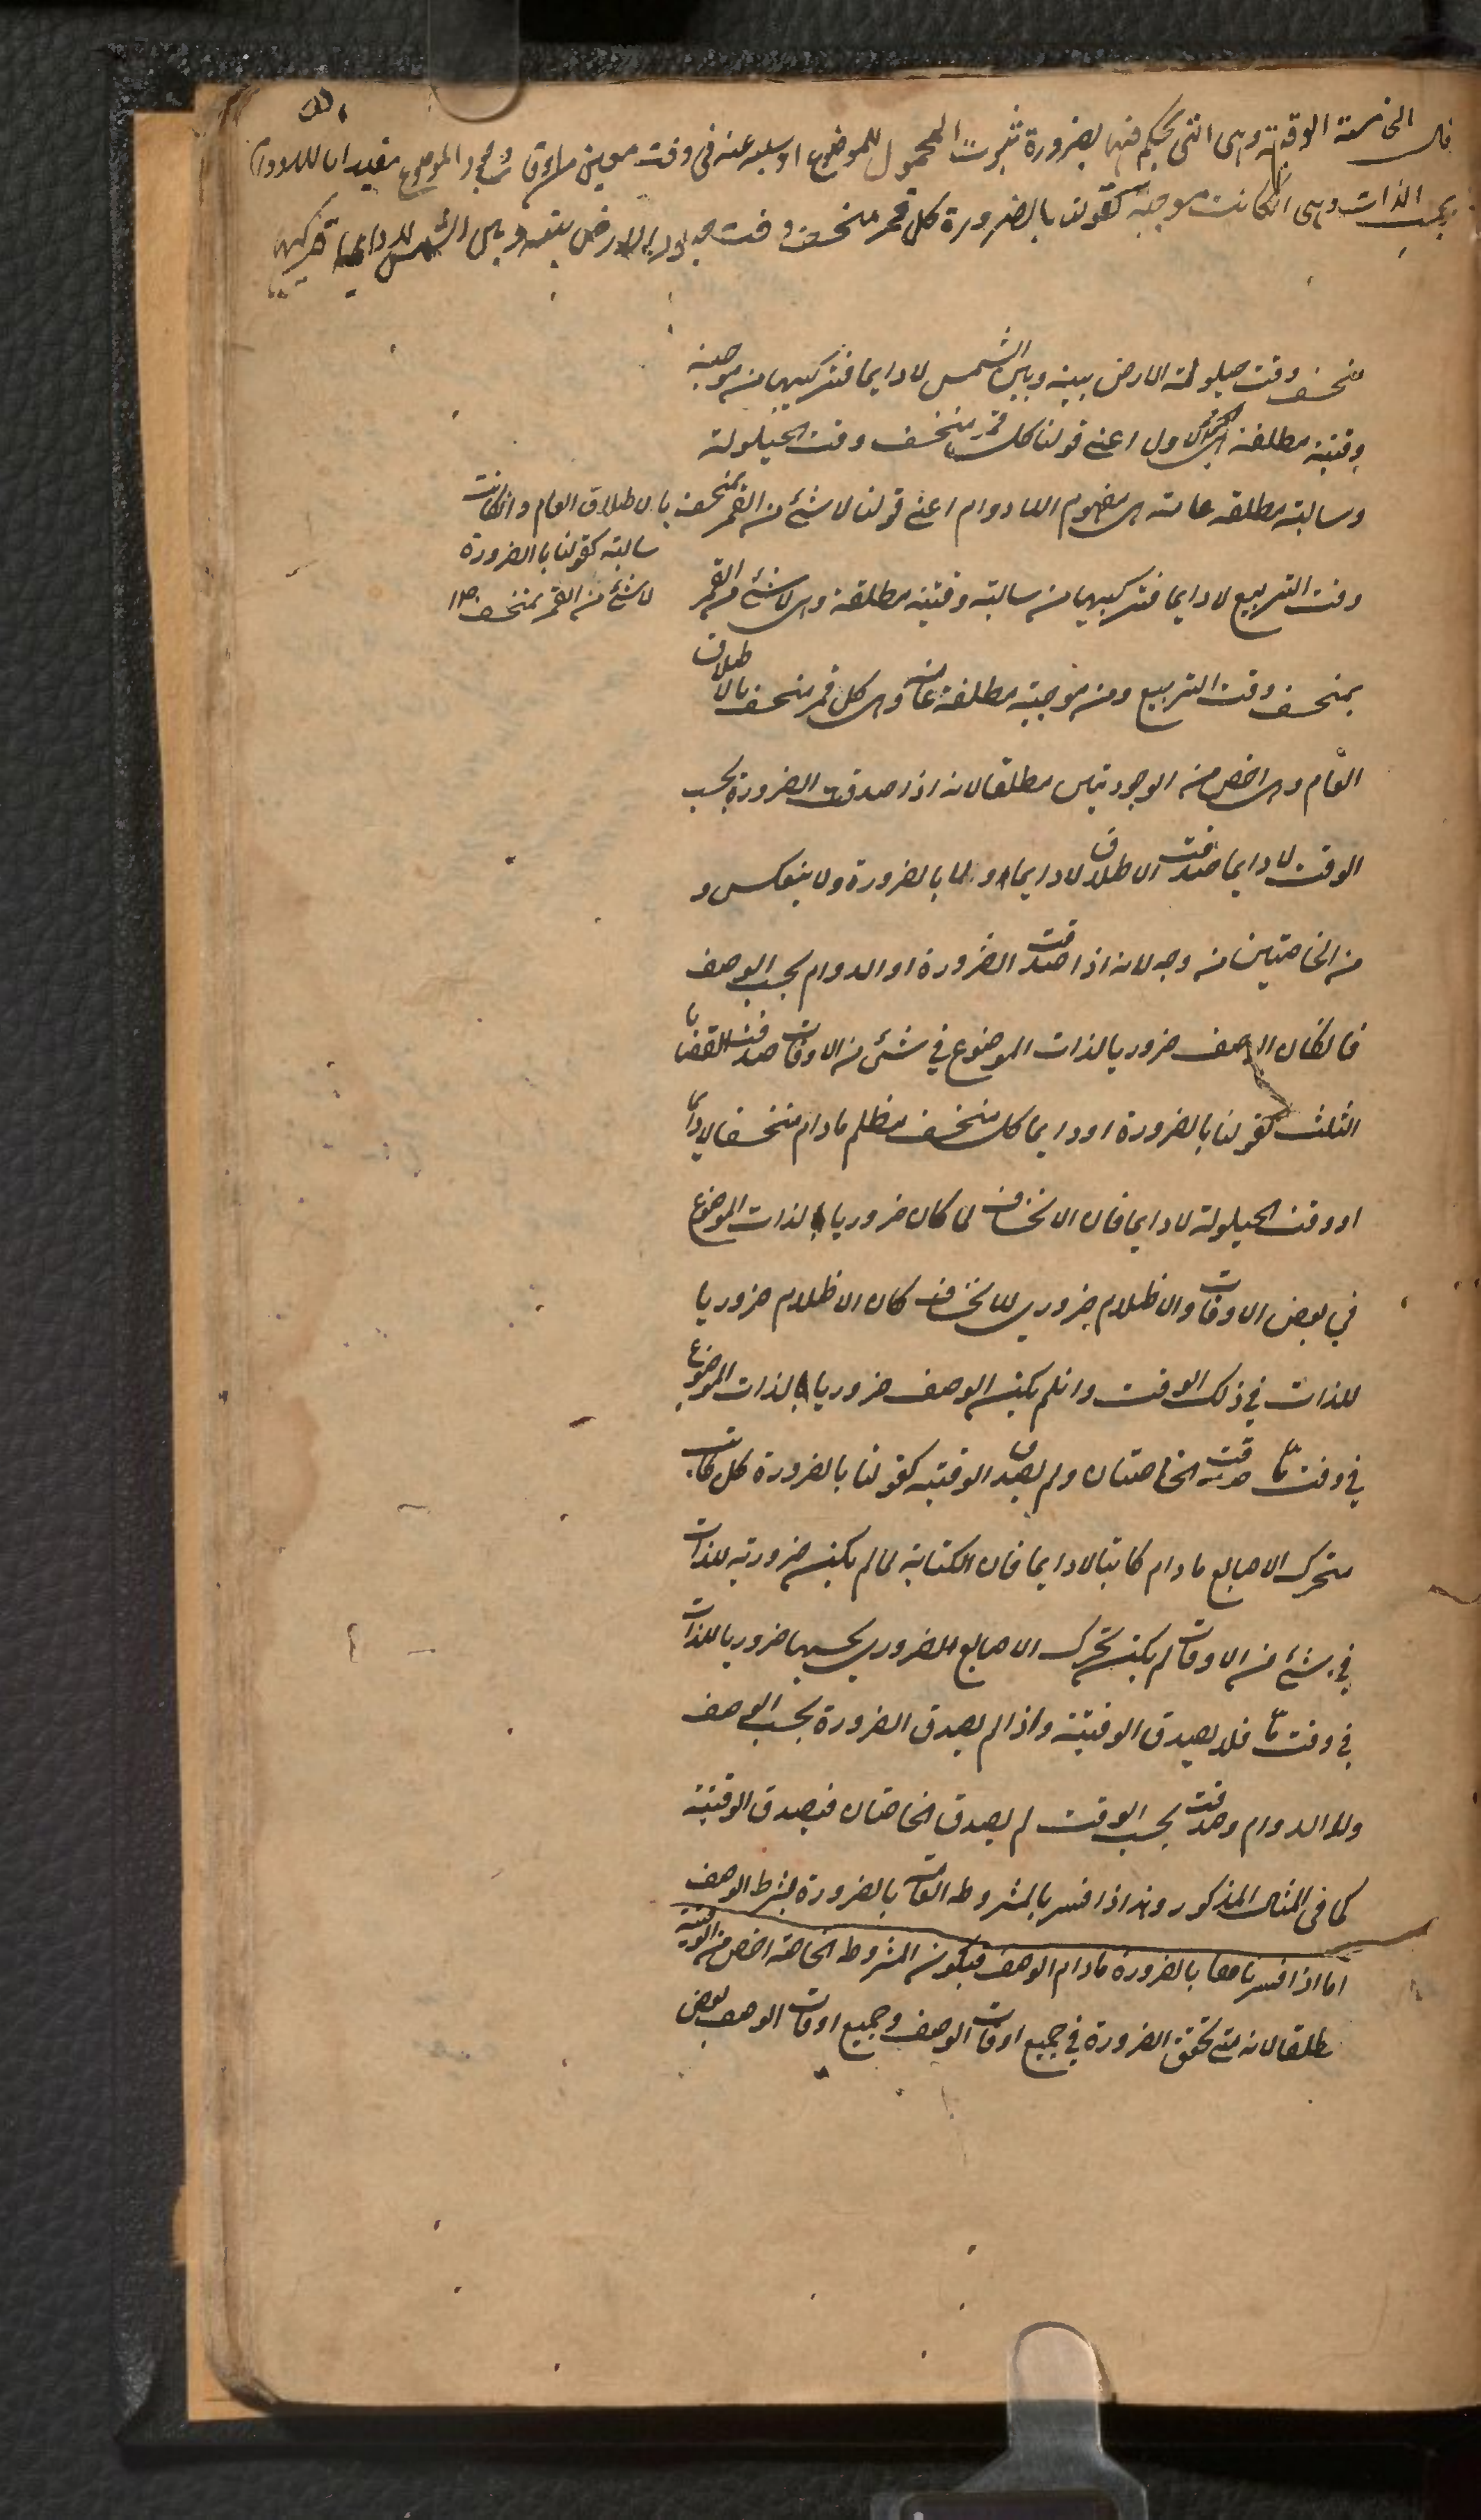 قال الخامسة الوقتية وهى التى يحكم فيها بضرورة ثبوت المحمول للموضوع او سلبه عنه فى وقت معين من اوقات وجود الموضوع مقيدا باللادوام
بحسب الذات وهى انكانت موجبة كقولنا بالضرورة كل قمر منخسف وقت حيلولة الارض بينه وبين الشمس لا دايما فتركيبها
منخسف وقت حيلولة الارض بينه وبين الشمس لا دايما فتركيبها من موجبة
وقتية مطلقة هى الجزء الاول اعنى قولنا كل قمر منخسف وقت الحيلولة
وسالبة مطلقة عامة هى مفهوم اللا دوام اعنى قولنا لا شئ من القمر بمنخسف بالاطلاق العام وانكانت
سالبة كقولنا بالضرورة
لا شئ من القمر بمنخسف
وقت التربيع لا دايما فتركيبها من سالبة وقتية مطلقة وهى لا شئ من القمر
بمنخسف وقت التربيع ومن موجبة مطلقة عامة وهى كل قمر منخسف بالاطلاق
العام وهى اخص من الوجوديتين مطلقا لانه اذا صدقت الضرورة بحسب
الوقت لا دايما صدقت الاطلاق لا دايما او لا بالضرورة ولا ينعكس و
من الخاصتين من وجه لانه اذا صدقت الضرورة او الدوام بحسب الوصف
فانكان الوصف ضروريا لذات الموضوع في شئ من الاوقات صدقت القضايا
الثلث كقولنا بالضرورة او دايما كل منخسف مظلم مادام منخسفا لا دايما
او وقت الحيلولة لا دايما فان الانخساف لما كان ضروريا لذات الموضوع
في بعض الاوقات والاظلام ضروري للانخساف كان الاظلام ضروريا
للذات في ذلك الوقت وان لم يكن الوصف ضروريا لذات الموضوع
في وقت مّا صدقت الخاصتان ولم يصدق الوقتية كقولنا بالضرورة كل كاتب
متحرك الاصابع مادام كاتبا لا دايما فان الكتابة لما لم يكن ضرورية للذات
في شئ من الاوقات لم يكن تحرك الاصابع الضروري بحسبها ضروريا للذات
في وقت مّا فلا يصدق الوقتية واذا لم يصدق الضرورة بحسب الوصف
ولا الدوام وصدقت بحسب الوقت لم يصدق الخاصتان فيصدق الوقتية
كما فى المثال المذكور وهذا اذا فسر بالمشروطه العامة بالضرورة بشرط الوصف
اما اذا فسرناها بالضرورة مادام الوصف فيكون المشروطة الخاصة اخص من الوقتية
مطلقا لانه متى تحقق الضرورة في جميع اوقات الوصف وجميع اوقات الوصف بعض